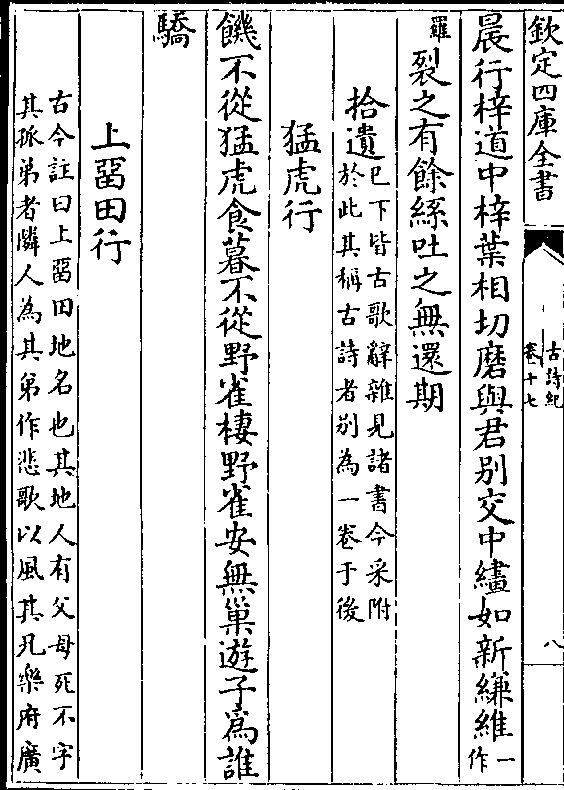 欽定四庫全書
古詩紀
卷十七
八
晨行梓道中梓葉相切磨與君别交中繣如新縑維一作
羅
裂之有餘絲吐之無還期
拾遺已下皆古歌辭雜見諸書今采附
於此其稱古詩者别為一卷于後
猛虎行
饑不從猛虎食暮不從野雀棲野雀安無巢遊子為誰
驕
上㽞田行
古今註曰上㽞田地名也其地人有父母死不字
其孤弟者隣人為其弟作悲歌以風其兄樂府廣